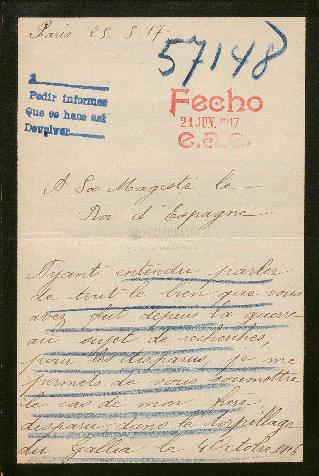 Paris 25. 5. 17.
57148
1
Pedir informes
Que se hace así
Devolver
Fecho
21 JUN. 1917
e.a.c.
A Sa Magesté le
Roi d'Espagne
Ayant entendu parler
de tout le bien que vous
avez fait depuis la guerre
au sujet de recherches,
pour les disparus, je me
permets de vous soumettre
le cas de mon frère,
disparu dans le torpillage
du Gallia le 4 Octobre 1916